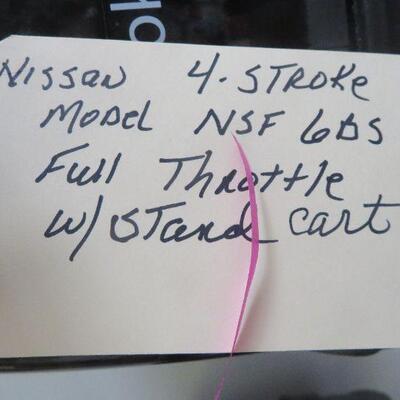 Nissan 4-Stroke
Model NSF 6BS
Full Throttle
w/ Stand cart